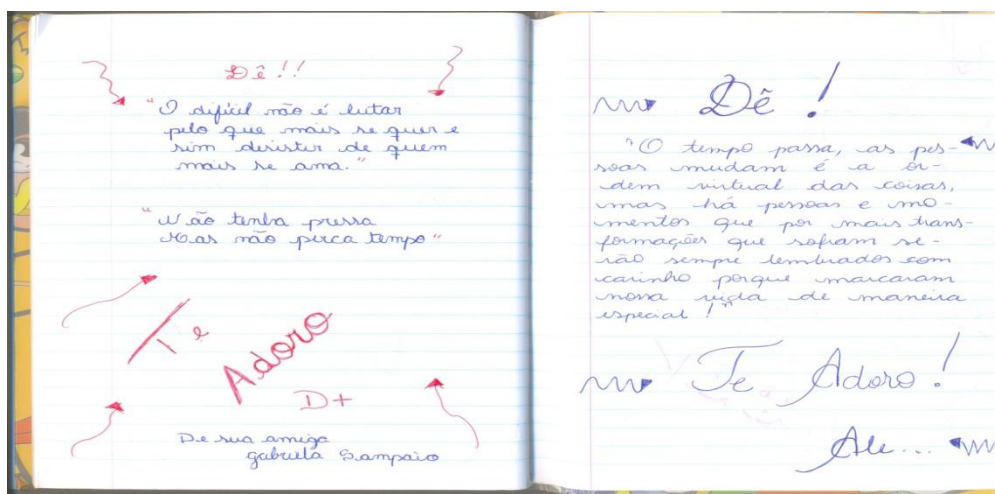 Dê!!
"O difícil não é lutar
pelo que mais se quer e
sim desistir de quem
mais se ama."
"Não tenha pressa
Mas não perca tempo"
Te
Adoro
D+
De sua amiga
gabriela Sampaio
Dê!
"O tempo passa, as pes-
soas mudam é a or-
dem virtual das coisas,
mas há pessoas e mo-
mentos que por mais trans-
formações que sofram se-
rão sempre lembrados com
carinho porque marcaram
nossa vida de maneira
especial!"
Te Adoro!
Ale...